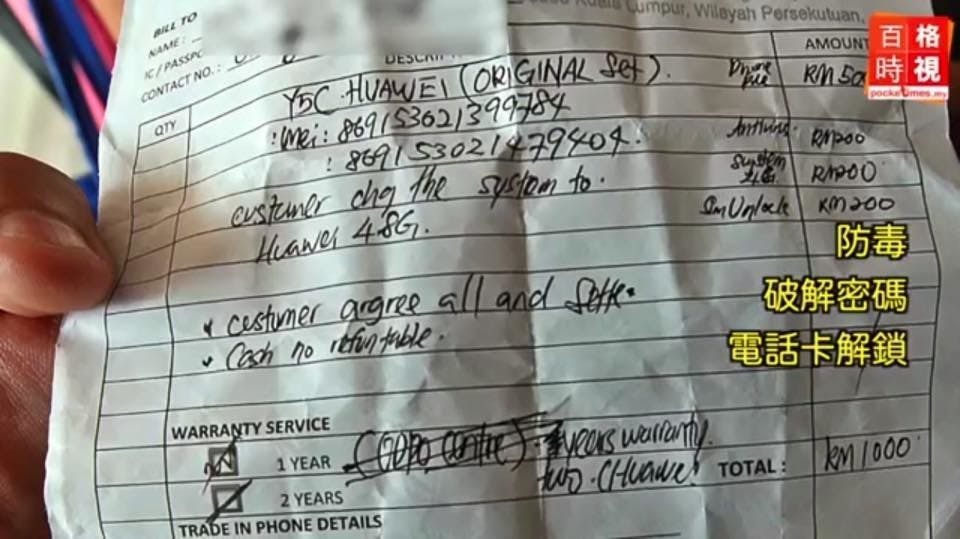 Kuala Lumpur, Wilayah Persekutuan,
BILL TO
NAME :
IC / PASSPO
CONTACT NO. :
百格
時視
pocketimes.my
QTY
DESCRIP
AMOUNT
Y5C HUAWEI (ORIGINAL Set). Phone RM 50
: Imei : 869153021399784
: 869153021479404. Antivirus RM200
customer chg the system to. System RM200
Huawei 4.8G. Sim Unlock RM200
防毒
破解密碼
電話卡解鎖
customer argree all and
Cash no refuntable.
WARRANTY SERVICE
1 YEAR years warranty.
2 YEARS
TOTAL : RM 1000
TRADE IN PHONE DETAILS